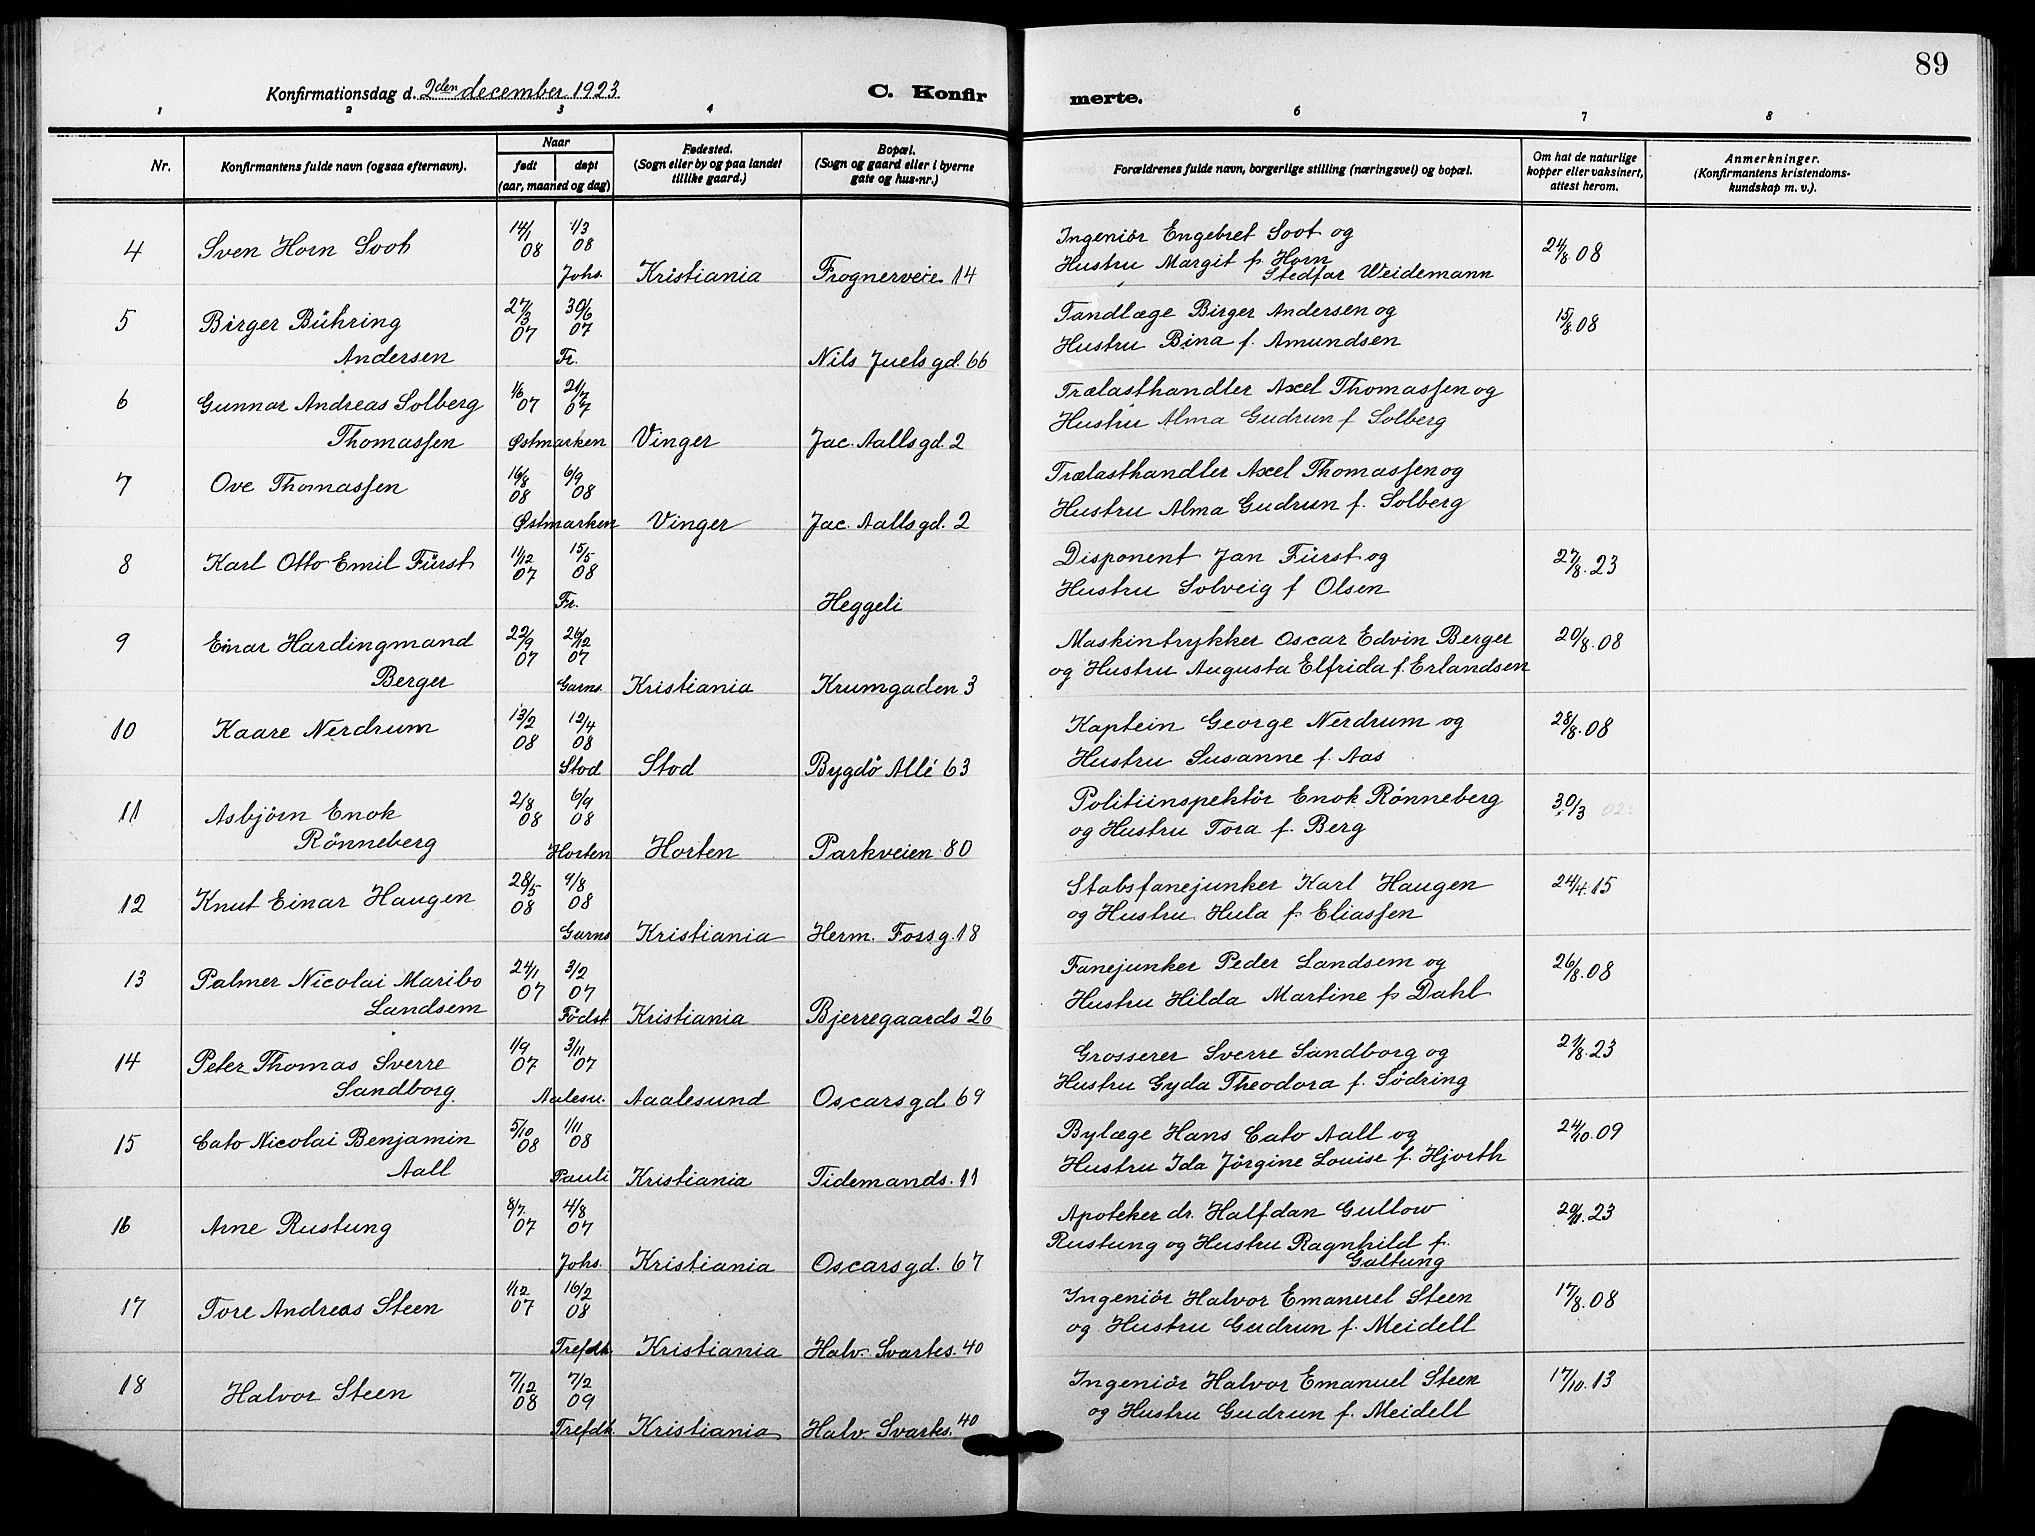 89
Konfirmationsdag d. 2den december 1923
C. Konfirmerte.
1 2 3 4 6 7 8
Nr. | Konfirmantens fulde navn (ogsaa efternavn). | Naar født døpt (aar, maaned og dag) | Fødested. (Sogn eller by og paa landet tillike gaard.) | Bopæl. (Sogn og gaard eller i byerne gate og hus-nr.) | Forældrenes fulde navn, borgerlige stilling (næringsvei) og bopæl. | Om hat de naturlige kopper eller vaksinert, attest herom. | Anmerkninger. (Konfirmantens kristendomskundskap m. v.)
4 Sven Horn Soot 14/1 08 1/3 08 Ingeniör Engebret Soot og 24/8.08
Johs. Kristiania Frognerveie 14 Hustru Margit f. Horn
Stedfar Weidemann
5 Birger Bühring 27/3 07 30/6 07 Tandlæge Birger Andersen og 15/8.08
Andersen Fr. Nils Juels gd. 66 Hustru Bina f. Amundsen
6 Gunnar Andreas Solberg 1/6 07 21/7 07 Trælasthandler Axel Thomassen og
Thomassen Østmarken Vinger Jac. Aallsgd. 2 Hustru Alma Gudrun f Solberg
7 Ove Thomassen 16/8 08 6/9 08 Trælasthandler Axel Thomassen og
Østmarken Vinger Jac. Aallsgd. 2 Hustru Alma Gudrun f. Solberg
8 Karl Otto Emil Fürst 11/12 07 15/5 08 Disponent Jan Fürst og 27/8.23
Fr. Heggeli Hustru Solveig f Olsen
9 Einar Hardingmand 22/9 07 26/12 07 Maskintrykker Oscar Edvin Berger 20/8.08
Berger Garns. Kristiania Krumgaden 3 og Hustru Augusta Elfrida f. Erlandsen
10 Kaare Nerdrum 13/2 08 12/4 08 Kaptein George Nerdrum og 28/8.08
Stod Stod Bygdö Allé 63 Hustru Susanne f. Aas
11 Asbjörn Enok 2/8 08 6/9 08 Politiinspektör Enok Rönneberg 30/3
Rönneberg Horten Horten Parkveien 80 og Hustru Tora f. Berg
12 Knut Einar Haugen 28/5 08 9/8 08 Stabsfanejunker Karl Haugen 24/4.15
Garns Kristiania Herm. Fossg. 18 og Hustru Hula f. Eliassen
13 Palmer Nicolai Maribo 24/1 07 3/2 07 Fanejunker Peder Landsem og 26/8.08
Landsem Födst. Kristiania Bjerregaards 26 Hustru Hilda Martine f. Dahl
14 Peter Thomas Sverre 1/9 07 3/11 07 Grosserer Sverre Sandborg og 21/8.23
Sandborg. Aalesu. Aalesund Oscarsgd 69 Hustru Gyda Theodora f. Södring
15 Cato Nicolai Benjamin 5/10 08 1/11 08 Bylæge Hans Cato Aall og 24/10.09
Aall Pauli Kristiania Tidemands. 11 Hustru Ida Jörgine Louise f. Hjorth
16 Arne Rustung 8/7. 07 4/8 07 Apoteker dr. Halfdan Gullow 20/11.23
Johs. Kristiania Oscarsgd. 67 Rustung og Hustru Ragnhild f.
Galtung
17 Tore Andreas Steen 1/12 07 16/2 08 Ingeniör Halvor Emanuel Steen 17/8.08
Trefdh. Kristiania Halv. Svartes. 40 og Hustru Gudrun f. Meidell
18 Halvor Steen 7/12 08 7/2 09 Ingeniör Halvor Emanuel Steen 17/10.13
Trefdh. Kristiania Halv. Svartes. 40 og Hustru Gudrun f. Meidell